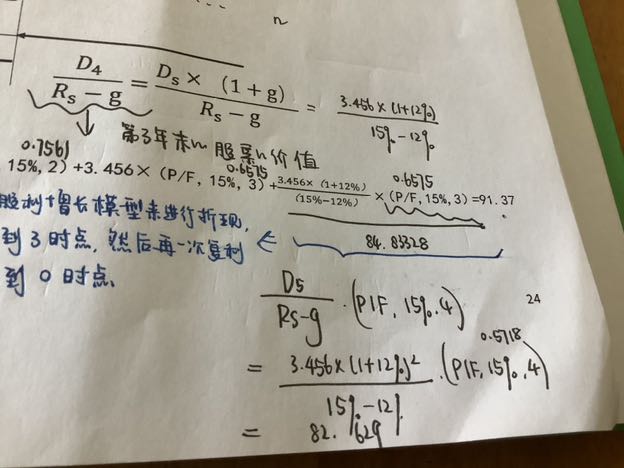 n
D₄/(Rₛ − g) = Dₛ × (1 + g)/(Rₛ − g) = 3.456×(1+12%)/(15%-12%)
第3年末的股票的价值
0.7561 0.6575 0.6575
15%, 2) +3.456×(P/F, 15%, 3)+3.456×(1+12%)/(15%-12%)×(P/F, 15%, 3)=91.37
股利增长模型来进行折现,
84.83328
到3时点,然后再一次复利
到0时点
D5/(Rs-g)·(P/F, 15%.4)
24
0.5718
= 3.456×(1+12%)²/(15%-12%)·(P/F, 15%, 4)
= 82.629